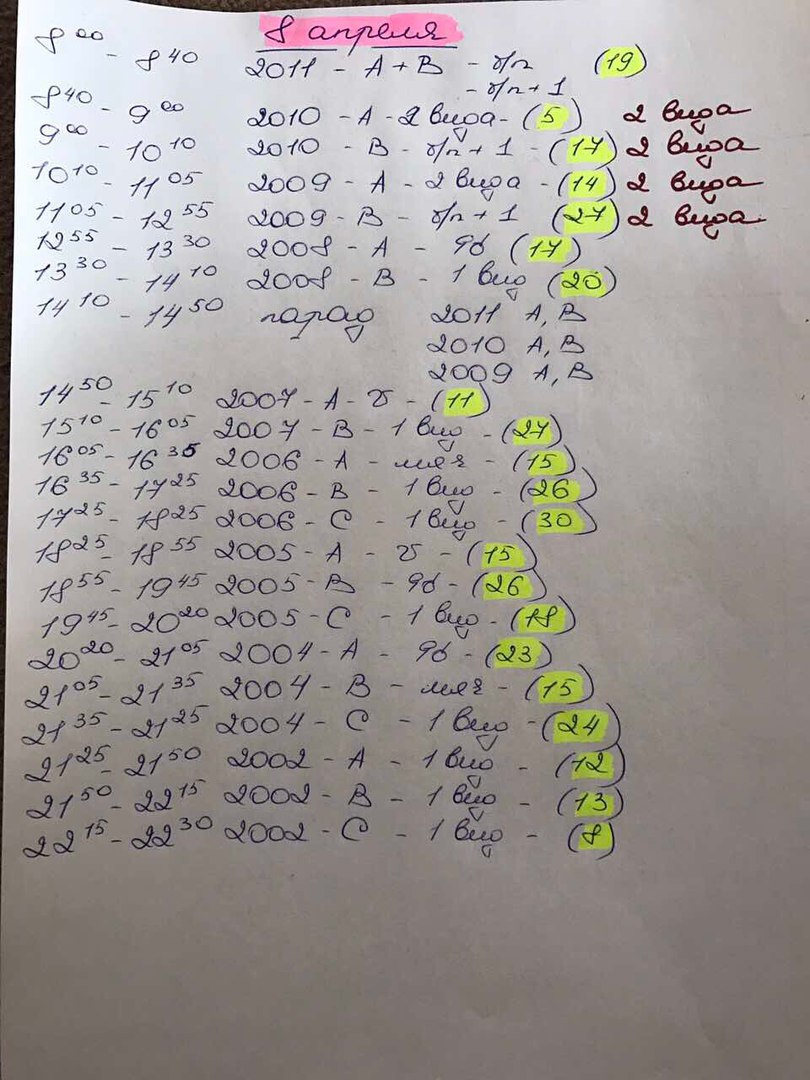 8 апреля
8⁰⁰ - 8⁴⁰ 2011 - А + В - б/п (19)
- б/п + 1
8⁴⁰ - 9⁰⁰ 2010 - А - 2 вида - (5) 2 вида
9⁰⁰ - 10¹⁰ 2010 - В - б/п + 1 - (17) 2 вида
10¹⁰ - 11⁰⁵ 2009 - А - 2 вида - (14) 2 вида
11⁰⁵ - 12⁵⁵ 2009 - В - б/п + 1 (27) 2 вида
12⁵⁵ - 13³⁰ 2008 - А - (17)
13³⁰ - 14¹⁰ 2008 - В - 1 вид (20)
14¹⁰ - 14⁵⁰ парад 2011 А, В
2010 А, В
2009 А, В
14⁵⁰ - 15¹⁰ 2007 - А - (11)
15¹⁰ - 16⁰⁵ 2007 - В - 1 вид - (27)
16⁰⁵ - 16³⁵ 2006 - А - мяч - (15)
16³⁵ - 17²⁵ 2006 - В - 1 вид - (26)
17²⁵ - 18²⁵ 2006 - С - 1 вид - (30)
18²⁵ - 18⁵⁵ 2005 - А - (15)
18⁵⁵ - 19⁴⁵ 2005 - В - (26)
19⁴⁵ - 20²⁰ 2005 - С - 1 вид - (18)
20²⁰ - 21⁰⁵ 2004 - А - (23)
21⁰⁵ - 21³⁵ 2004 - В - мяч - (15)
21³⁵ - 21²⁵ 2004 - С - 1 вид - (24)
21²⁵ - 21⁵⁰ 2002 - А - 1 вид - (12)
21⁵⁰ - 22¹⁵ 2002 - В - 1 вид - (13)
22¹⁵ - 22³⁰ 2002 - С - 1 вид - (8)